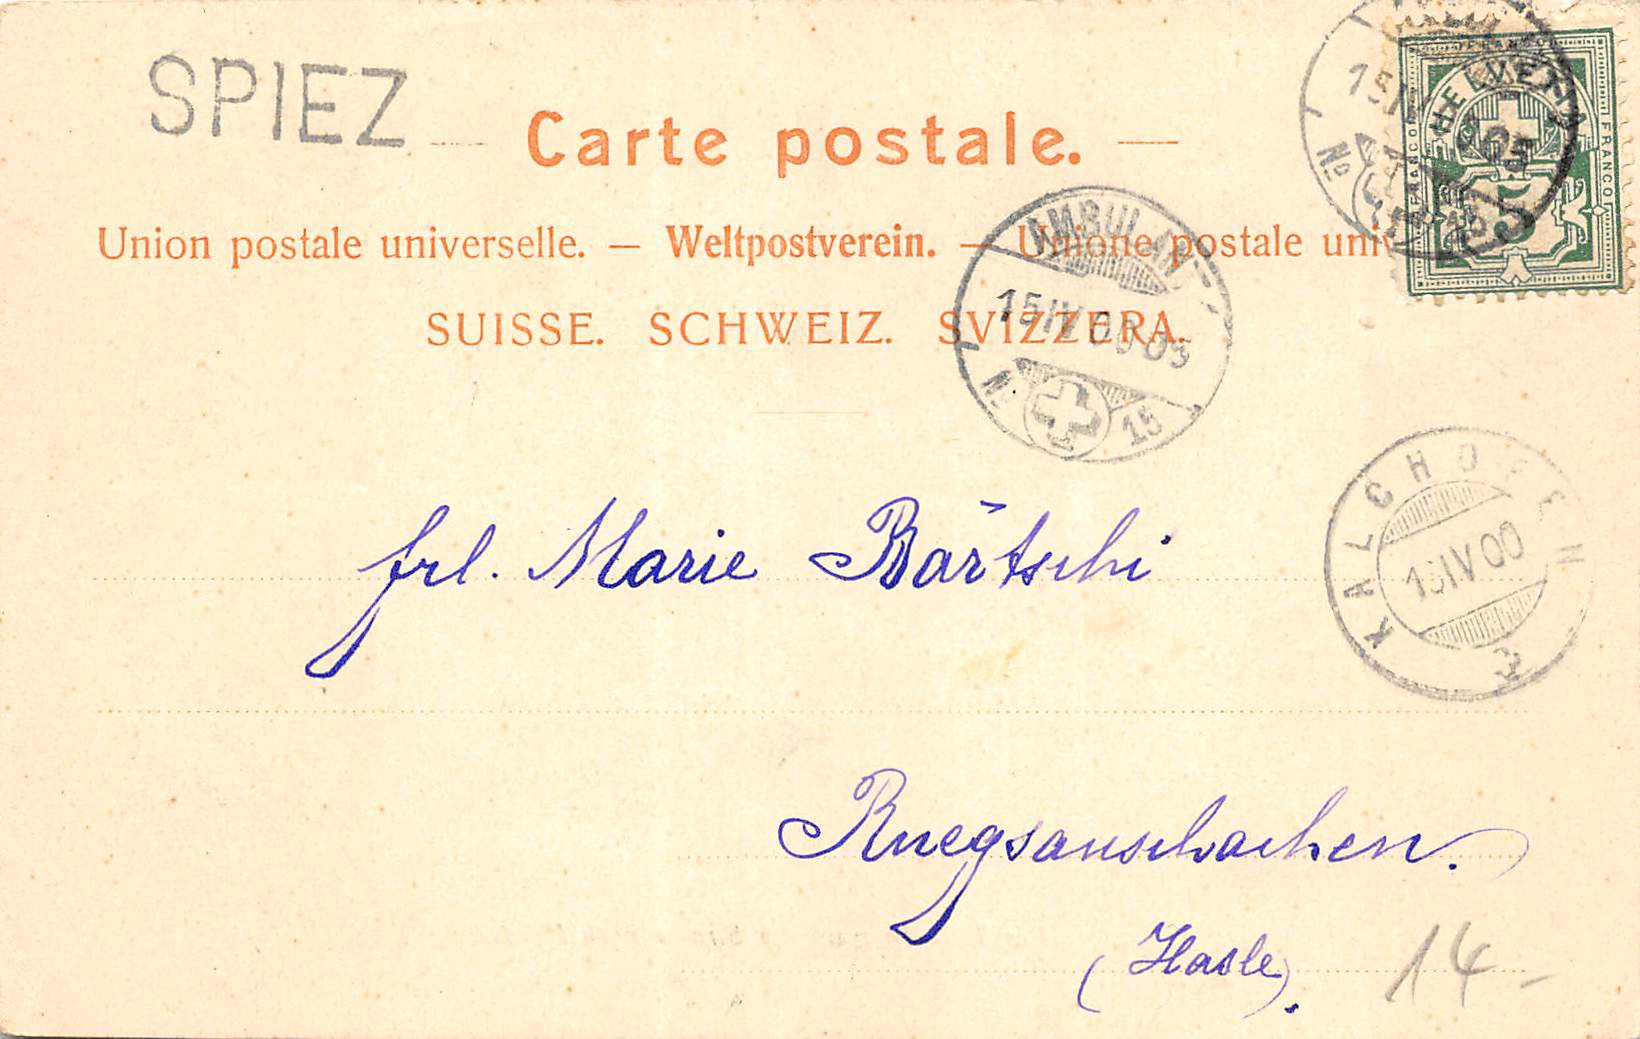 SPIEZ
Carte postale.
Union postale universelle. — Weltpostverein. — Unione postale
SUISSE. SCHWEIZ. SVIZZERA.
HELVETIA
FRANCO
FRANCO
5
15 IV
No
AMBULANT
15 IV 00 05
No 15
KALCHOFEN
15 IV 00
frl. Marie Bärtschi
Ruegsauschachen.
(Hasle).
14-